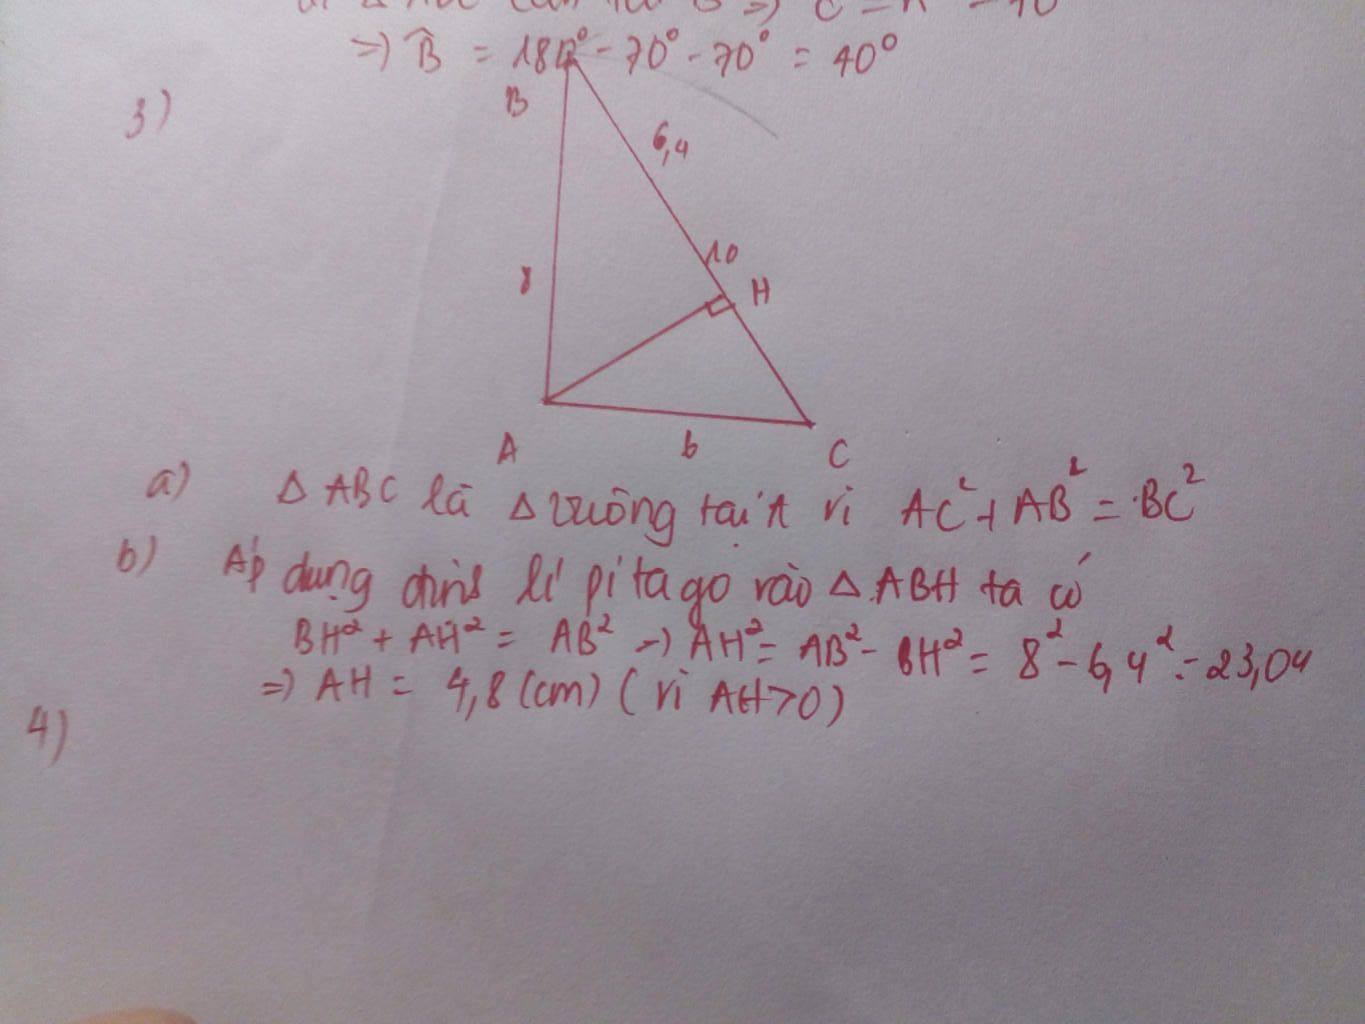 ⇒ B̂ = 180° - 70° - 70° = 40°
3)
B
6,4
10
H
8
A
6
C
a) Δ ABC là Δ vuông tại A vì AC² + AB² = BC²
b) Áp dụng định lí pitago vào Δ ABH ta có
BH² + AH² = AB² → AH² = AB² - BH² = 8² - 6,4² = 23,04
⇒ AH = 4,8 (cm) (vì AH>0)
4)